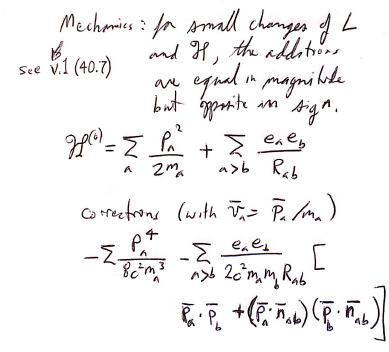 Mechanics: for small changes of L
and ℋ, the additions
see v.1 (40.7)
are equal in magnitude
but opposite in sign.
ℋ⁽⁰⁾ = Σ_a P_a²/2m_a + Σ_{a>b} e_a e_b/R_ab
corrections (with v̄_a = P̄_a/m_a)
-Σ_a P_a⁴/8c²m_a³ - Σ_{a>b} e_a e_b/2c²m_a m_b R_ab [
P̄_a·P̄_b + (P̄_a·n̄_ab)(P̄_b·n̄_ab)]